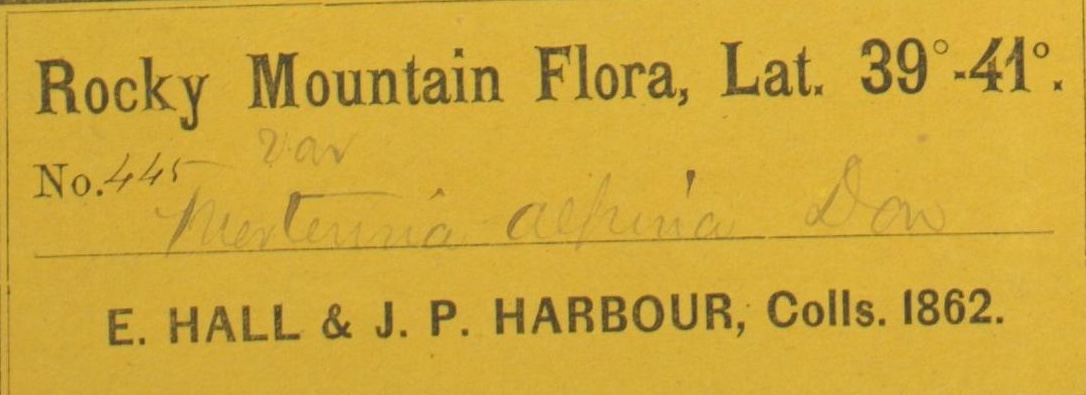 Rocky Mountain Flora, Lat. 39°-41°.
var
No. 445
Mertensia alpina Don
E. HALL & J. P. HARBOUR, Colls. 1862.